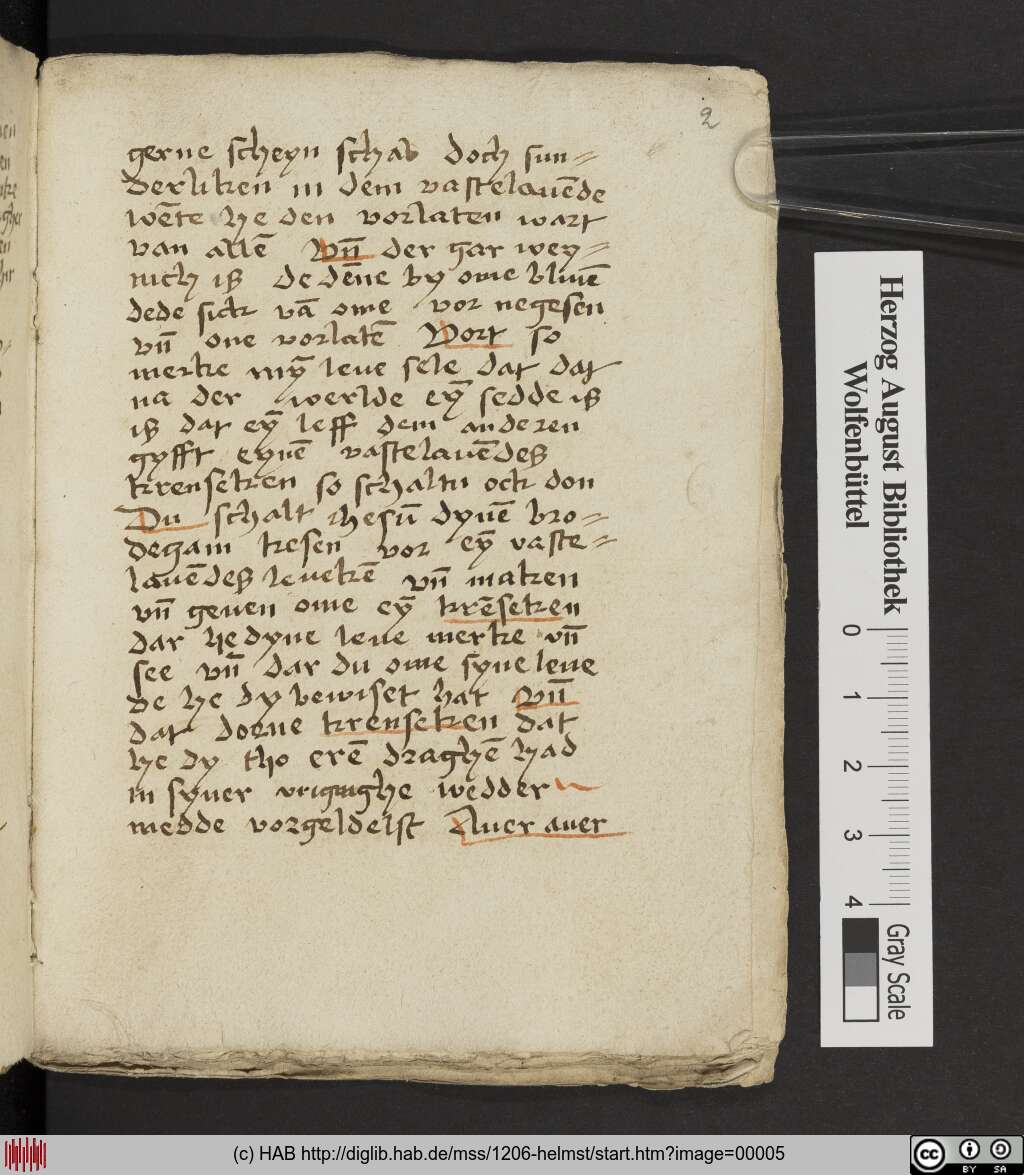 2
gerne scheyn schab doch sun=
derliken in dem vastelauēde
wēte he den vorlaten wart
van allē Vn̄ der gar wey=
nich is de dēne by ome bliuē
dede sick vā ome vor negesen
vn̄ one vorlatē Vort so
merke mȳ leue sele dat dat
na der werlde eȳ sedde is
is dat eȳ leff dem anderen
gyfft eynē vastelauēdes
krenseken so schaltu ock don
Du schalt ihesū dynē bro=
degam kesen vor eȳ vaste=
lauēdes leuekē vn̄ maken
vn̄ geuen ome eȳ krēseken
dar he dyne leue merke vn̄
see vn̄ dar du ome syne leue
de he dy bewiset hat Vn̄
dat doerne krenseken dat
he dy tho erē draghē had
in syner vriginghe wedder
medde vorgeldelst Auer auer
Herzog August Bibliothek
Wolfenbüttel
0 1 2 3 4
Gray Scale
(c) HAB http://diglib.hab.de/mss/1206-helmst/start.htm?image=00005
cc BY SA